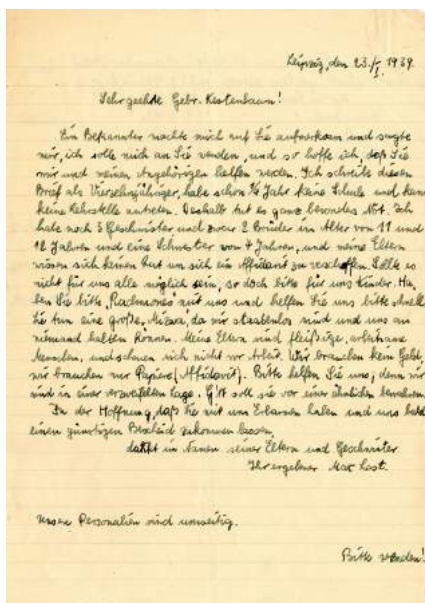 Leipzig, den 23./I. 1939.
Sehr geehrte Gebr. Kestenbaum!
Ein Bekannter machte mich auf Sie aufmerksam und sagte
mir, ich solle mich an Sie wenden, und so hoffe ich, daß Sie
mir und meinen Angehörigen helfen werden. Ich schreibe diesen
Brief als Vierzehnjähriger, habe schon ¼ Jahr keine Schule und kann
keine Lehrstelle antreten. Deshalb tut es ganz besonders Not. Ich
habe noch 3 Geschwister und zwar 2 Brüder im Alter von 11 und
12 Jahren und eine Schwester von 4 Jahren, und meine Eltern
wissen sich keinen Rat um sich ein Affidavit zu verschaffen. Sollte es
nicht für uns alle möglich sein, so doch bitte für uns Kinder. Ha-
ben Sie bitte "Rachmones" mit uns und helfen Sie uns bitte schnell
Sie tun eine große "Mizwa", da wir staatenlos sind und uns an
niemand halten können. Meine Eltern sind fleißige, arbeitsame
Menschen, und scheuen sich nicht vor Arbeit. Wir brauchen kein Geld,
wir brauchen nur Papiere (Affidavit). Bitte helfen Sie uns, denn wir
sind in einer verzweifelten Lage. G'tt soll sie vor eine ähnlichen bewahren.
In der Hoffnung, daß Sie mit uns Erbarmen haben und uns bald
einen günstigen Bescheid zukommen lassen,
dankt im Namen seiner Eltern und Geschwister
Ihr ergebener Max Lest.
Unsere Personalien sind umseitig.
Bitte wenden!